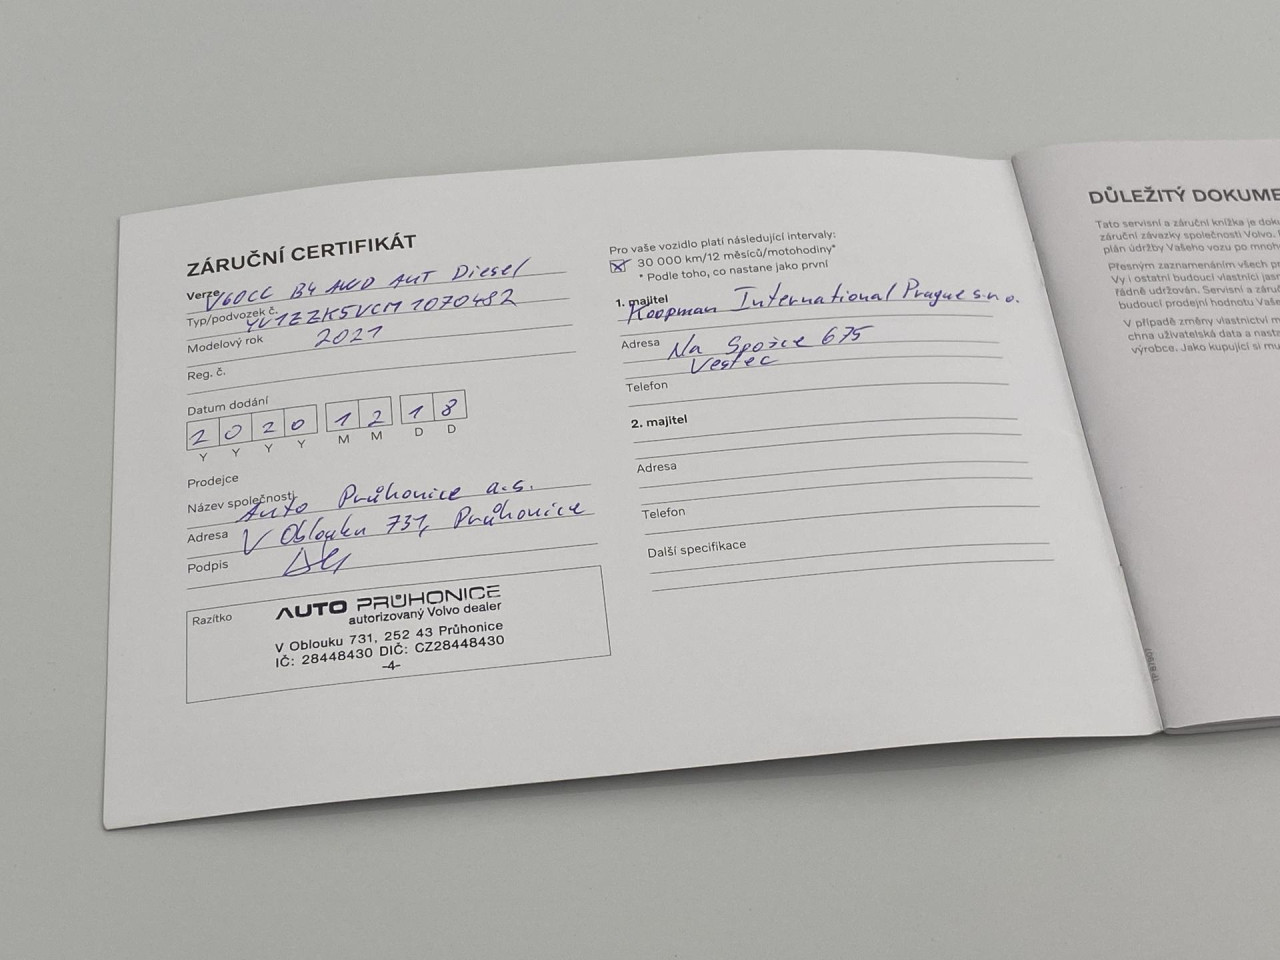 ZÁRUČNÍ CERTIFIKÁT
Verze V60CC B4 AWD AUT Diesel
Typ/podvozek č. YV1ZZK5VCM1070482
Modelový rok 2021
Reg. č.
Datum dodání
2 0 2 0 1 2 1 8
Y Y Y Y M M D D
Prodejce
Název společnosti Auto Průhonice a.s.
Adresa V Oblouku 731, Průhonice
Podpis
Razítko
AUTO PRŮHONICE
autorizovaný Volvo dealer
V Oblouku 731, 252 43 Průhonice
IČ: 28448430 DIČ: CZ28448430
-4-
Pro vaše vozidlo platí následující intervaly:
30 000 km/12 měsíců/motohodiny*
* Podle toho, co nastane jako první
1. majitel Koopman International Prague s.r.o.
Adresa Na Spojce 675
Vestec
Telefon
2. majitel
Adresa
Telefon
Další specifikace
DŮLEŽITÝ DOKUME
Tato servisní a záruční knížka je doku
záruční závazky společnosti Volvo.
plán údržby Vašeho vozu po mnoho
Přesným zaznamenáním všech pr
Vy i ostatní budoucí vlastníci jasn
řádně udržován. Servisní a záruč
budoucí prodejní hodnotu Vaše
V případě změny vlastnictví m
chna uživatelská data a nastn
výrobce. Jako kupující si mu